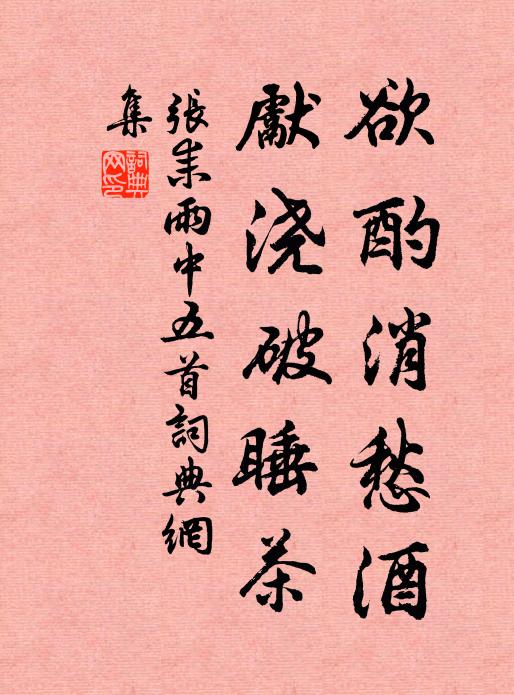 欲酌消愁酒
獻浇破睡茶
張耒雨中五首詞典網
集
詞典
网印